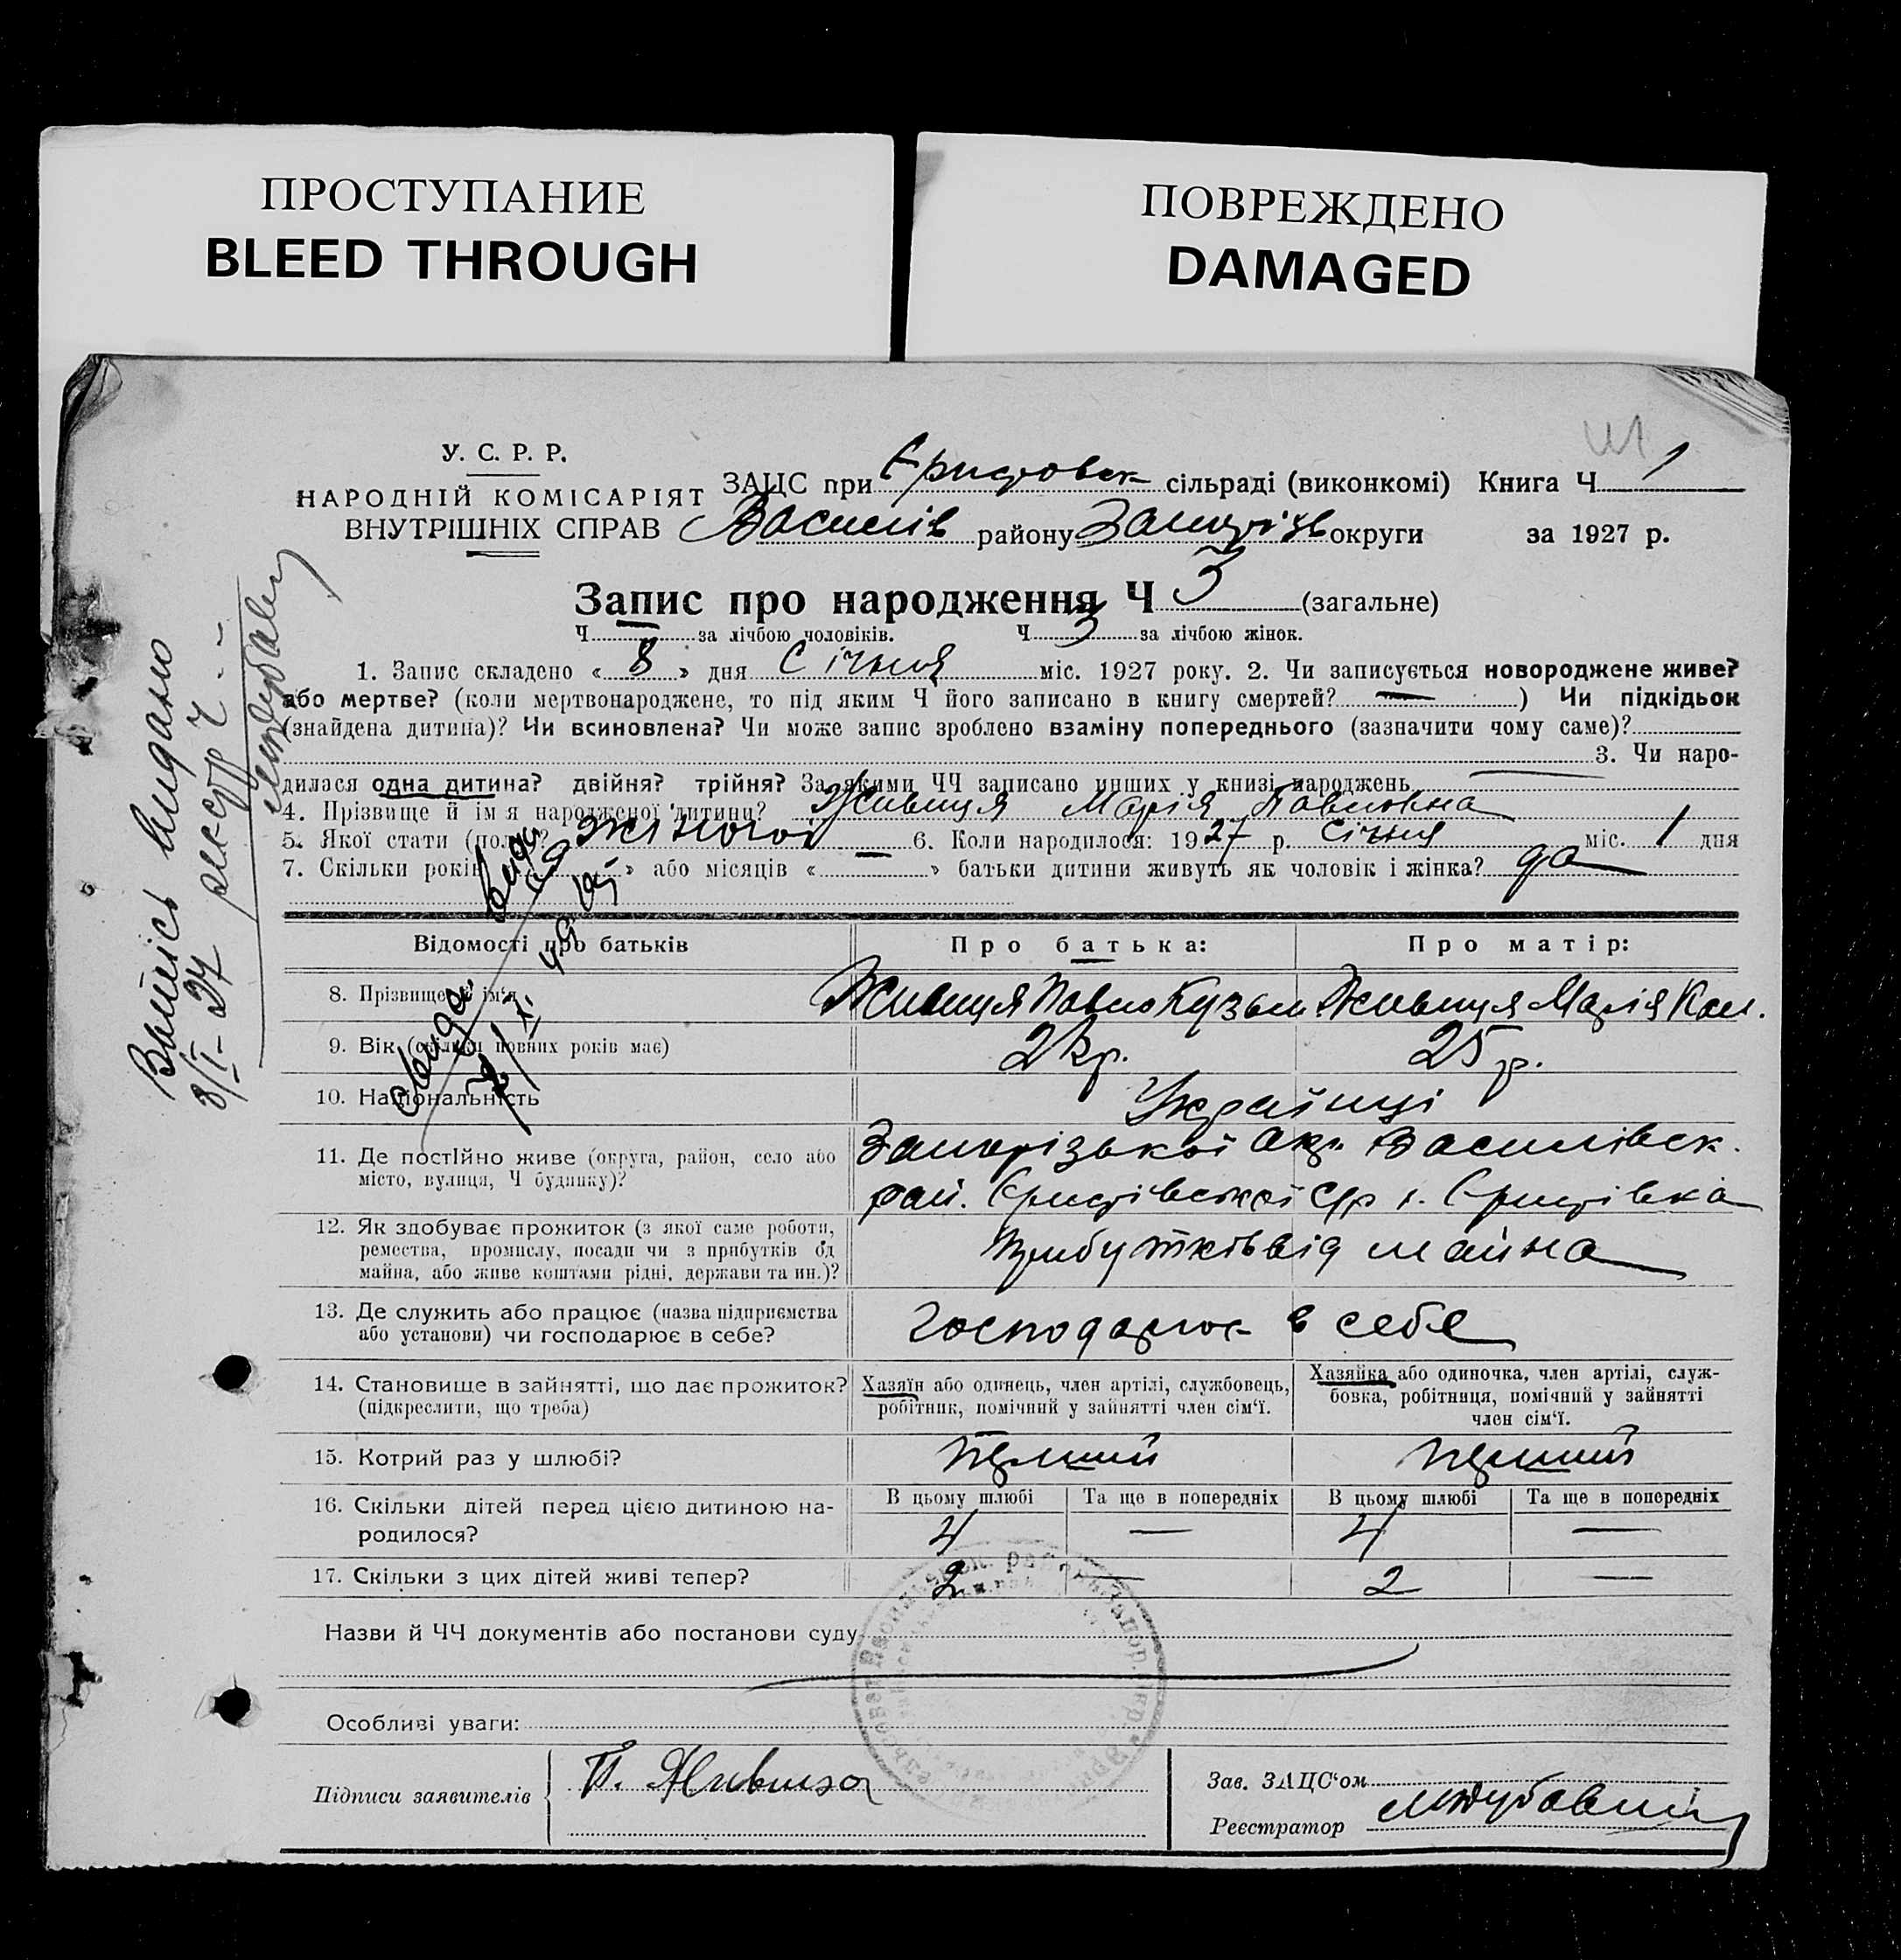 ПРОСТУПАНИЕ
BLEED THROUGH
ПОВРЕЖДЕНО
DAMAGED
У. С. Р. Р.
НАРОДНІЙ КОМІСАРІЯТ
ВНУТРІШНІХ СПРАВ
ЗАЦС при Єристовск сільраді (виконкомі) Книга Ч 1
Василів району Запоріз округи за 1927 р.
Запис про народження Ч 3 (загальне)
Ч за лічбою чоловіків. Ч 3 за лічбою жінок.
1. Запис складено « 8 » дня Січня міс. 1927 року. 2. Чи записується новороджене живе?
або мертве? (коли мертвонароджене, то під яким Ч його записано в книгу смертей? — ) Чи підкідьок
(знайдена дитина)? Чи всиновлена? Чи може запис зроблено взаміну попереднього (зазначити чому саме)?
3. Чи наро-
дилася одна дитина? двійня? трійня? За якими ЧЧ записано инших у книзі народжень —
4. Прізвище й ім'я народженої дитини? Живиця Марія Павловна
5. Якої стати (пол)? Жіночої — 6. Коли народилося: 1927 р. Січня міс. 1 дня
7. Скільки років » або місяців « — » батьки дитини живуть як чоловік і жінка? да
Відомості про батьків
Про батька:
Про матір:
8. Прізвище й ім'я
Живиця Павло Кузьм
Живиця Марія
9. Вік (скільки повних років має)
р.
25 р.
10. Національність
Українці
11. Де постІйно живе (округа, район, село або
місто, вулиця, Ч будинку)?
Запорізької окр. Василівск.
рай. Єристівської с/р с. Єристівка
12. Як здобуває прожиток (з якої саме роботи,
ремества, промислу, посади чи з прибутків од
майна, або живе коштами рідні, держави та ин.)?
Прибутків від майна
13. Де служить або працює (назва підприємства
або установи) чи господарює в себе?
Господарює в себе
14. Становище в зайнятті, що дає прожиток?
(підкреслити, що треба)
Хазяїн або одинець, член артілі, службовець,
робітник, помічний у зайнятті член сім'ї.
Хазяйка або одиночка, член артілі, служ-
бовка, робітниця, помічний у зайнятті
член сім'ї.
15. Котрий раз у шлюбі?
Перший
Перший
16. Скільки дітей перед цією дитиною на-
родилося?
В цьому шлюбі
Та ще в попередніх
В цьому шлюбі
Та ще в попередніх
4 — 4 —
17. Скільки з цих дітей живі тепер?
2 — 2 —
Назви й ЧЧ документів або постанови суду
Особливі уваги:
Підписи заявителів
П. Живиця
Зав. ЗАЦС'ом
Реєстратор
Випісь видано
8/I-27
реєстр Ч